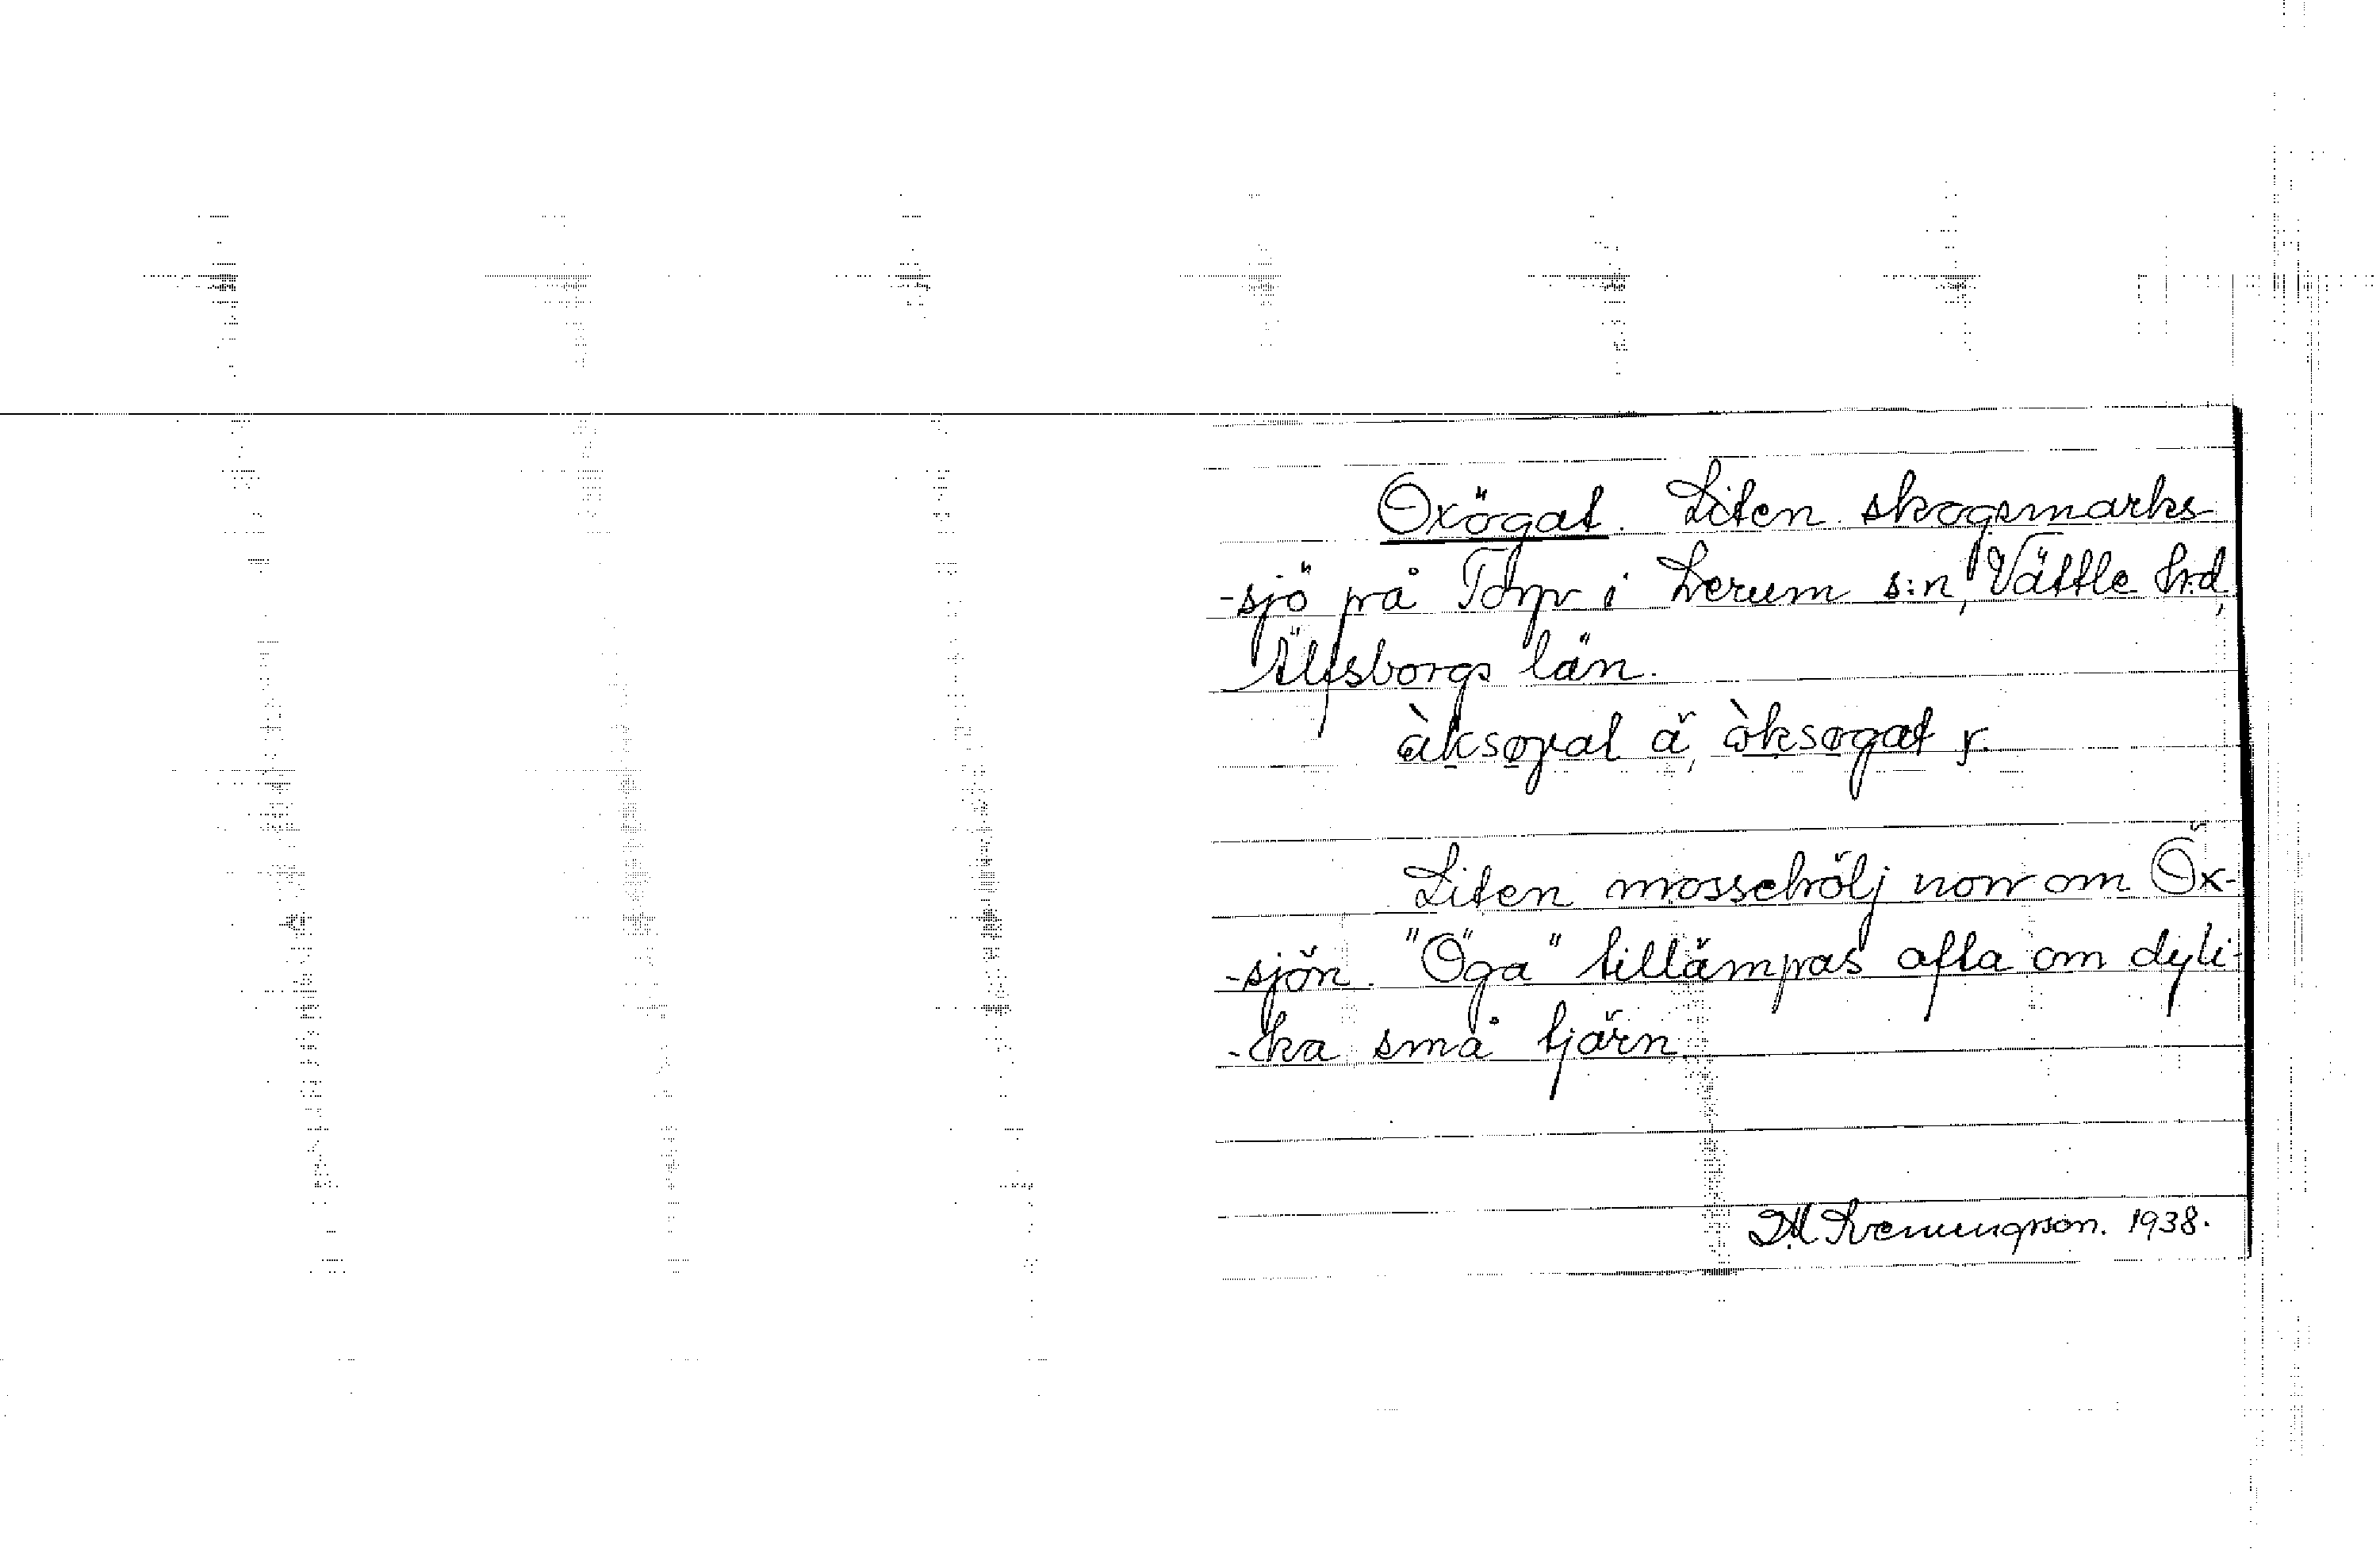 Oxögat. Liten skogsmarks-
-sjö på Torp i Lerum s:n, Vättle hrd,
Älfsborgs län.
àksøgat ä, òksøgat y.
Liten mossehölj norr om Öx-
-sjön. "Öga" tillämpas ofta om dyli-
-ka små tjärn.
1938.